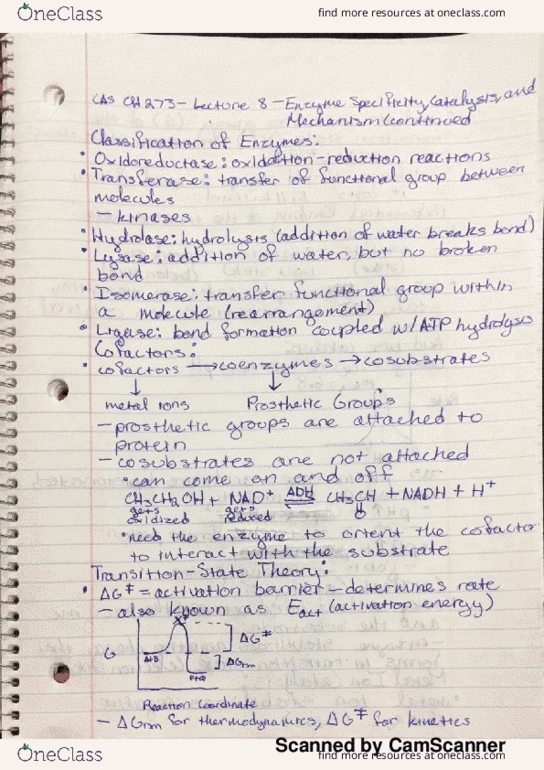 OneClass
find more resources at oneclass.com
CAS CH 273 - Lecture 8 - Enzyme Specificity, Catalysis, and
Mechanism (continued
Classification of Enzymes:
• Oxidoreductase: oxidation-reduction reactions
• Transferase: transfer of functional group between
molecules
- kinases
• Hydrolase: hydrolysis (addition of water breaks bond)
• Lyase: addition of water, but no broken
bond
• Isomerase: transfer functional group within
a molecule (rearrangement)
• Ligase: bond formation coupled w/ATP hydrolysis
Cofactors:
• cofactors → coenzymes → cosubstrates
↓ ↓
metal ions Prosthetic Groups
- prosthetic groups are attached to
protein
- cosubstrates are not attached
• can come on and off
CH3CH2OH + NAD+ ADH ⇌ CH3CH + NADH + H+
gets oxidized gets reduced O
• need the enzyme to orient the cofactor
to interact with the substrate
Transition-State Theory:
• ΔG‡ = activation barrier - determines rate
- also known as Eact (activation energy)
G A+B ΔG‡
ΔGrxn
P+Q
Reaction Coordinate
- ΔGrxn for thermodynamics, ΔG‡ for kinetics
Scanned by CamScanner
OneClass
find more resources at oneclass.com